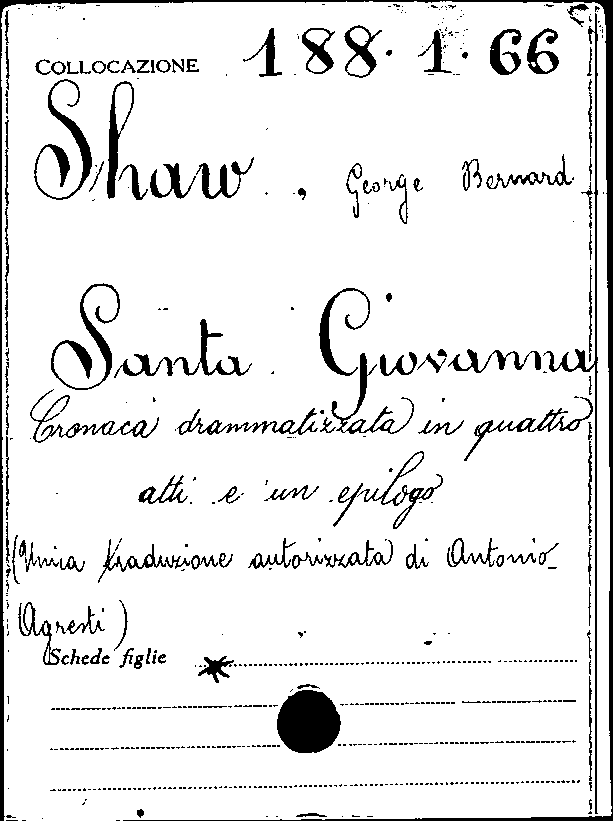 COLLOCAZIONE 188. 1. 66
Shaw, George Bernard
Santa Giovanna
Cronaca drammatizzata in quattro
atti e un epilogo
(Unica traduzione autorizzata di Antonio
Agresti)
Schede figlie